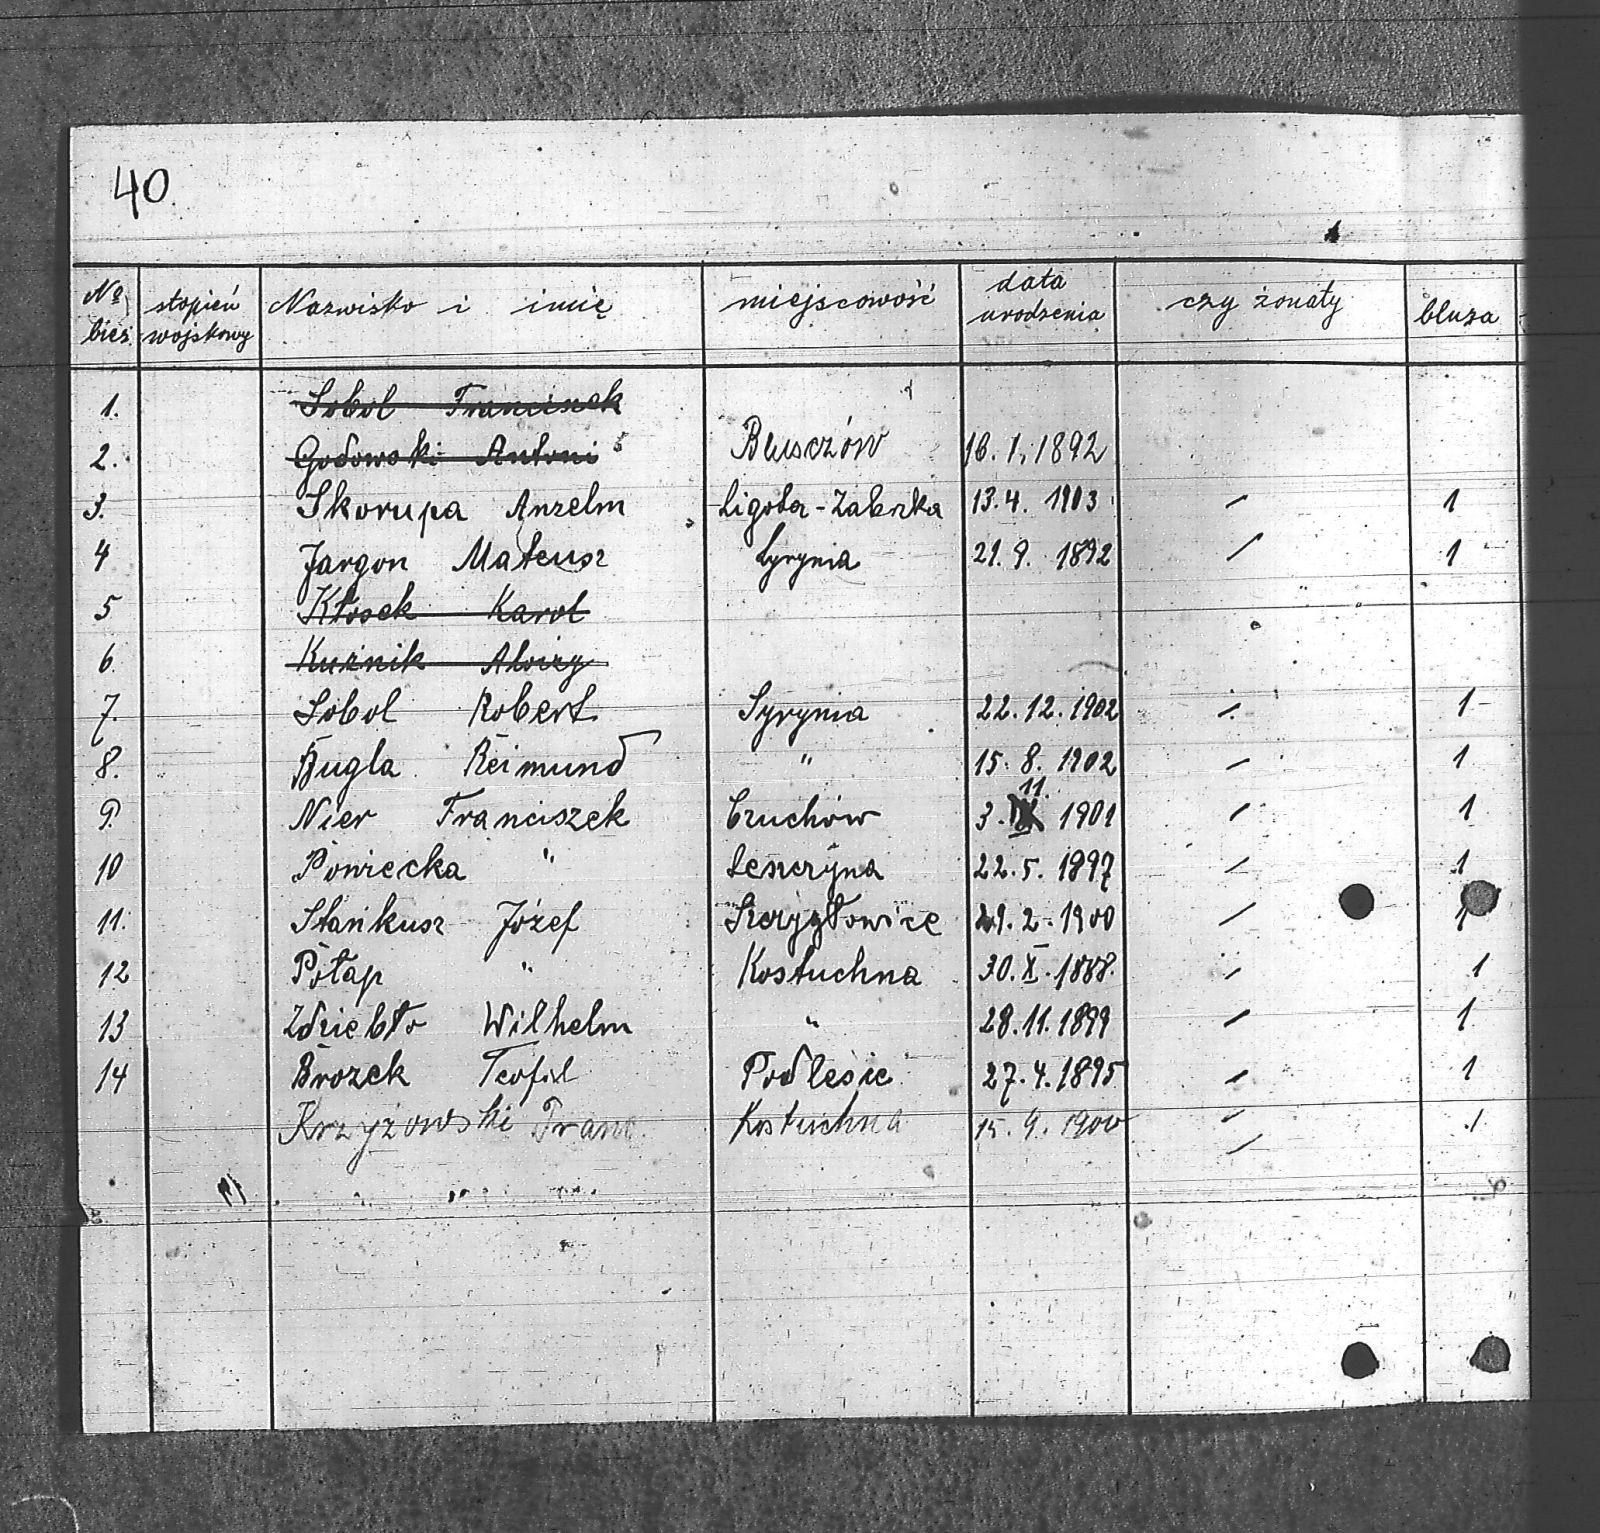 40.
№ bież. stopień wojskowy Nazwisko i imię miejscowość data urodzenia czy żonaty bluza
1. Sobol Franciszek
2. Godowski Antoni Bluszczów 16.1.1892
3. Skorupa Anzelm Ligota-Zabrzka 13.4. 1903 / 1
4 Jargon Mateusz Syrynia 21.9. 1892 / 1
5 Kłosek Karol
6. Kuźnik Alojzy
7. Sobol Robert Syrynia 22.12.1902 / 1
8. Bugla Reimund " 15.8.1902 / 1
9. Nier Franciszek Czuchów 3. 11. 1901 / 1
10 Powiecka " Leszczyna 22.5.1897 / 1
11. Stańkusz Józef Szczygłowice 29.2.1900 / 1
12 Potap " Kostuchna 30.X.1888. / 1
13 Zdziebło Wilhelm " 28.11.1899 / 1
14 Brozek Teofil Podlesie 27.4.1895 / 1
Krzyżowski Franc. Kostuchna 15.9.1900 / 1